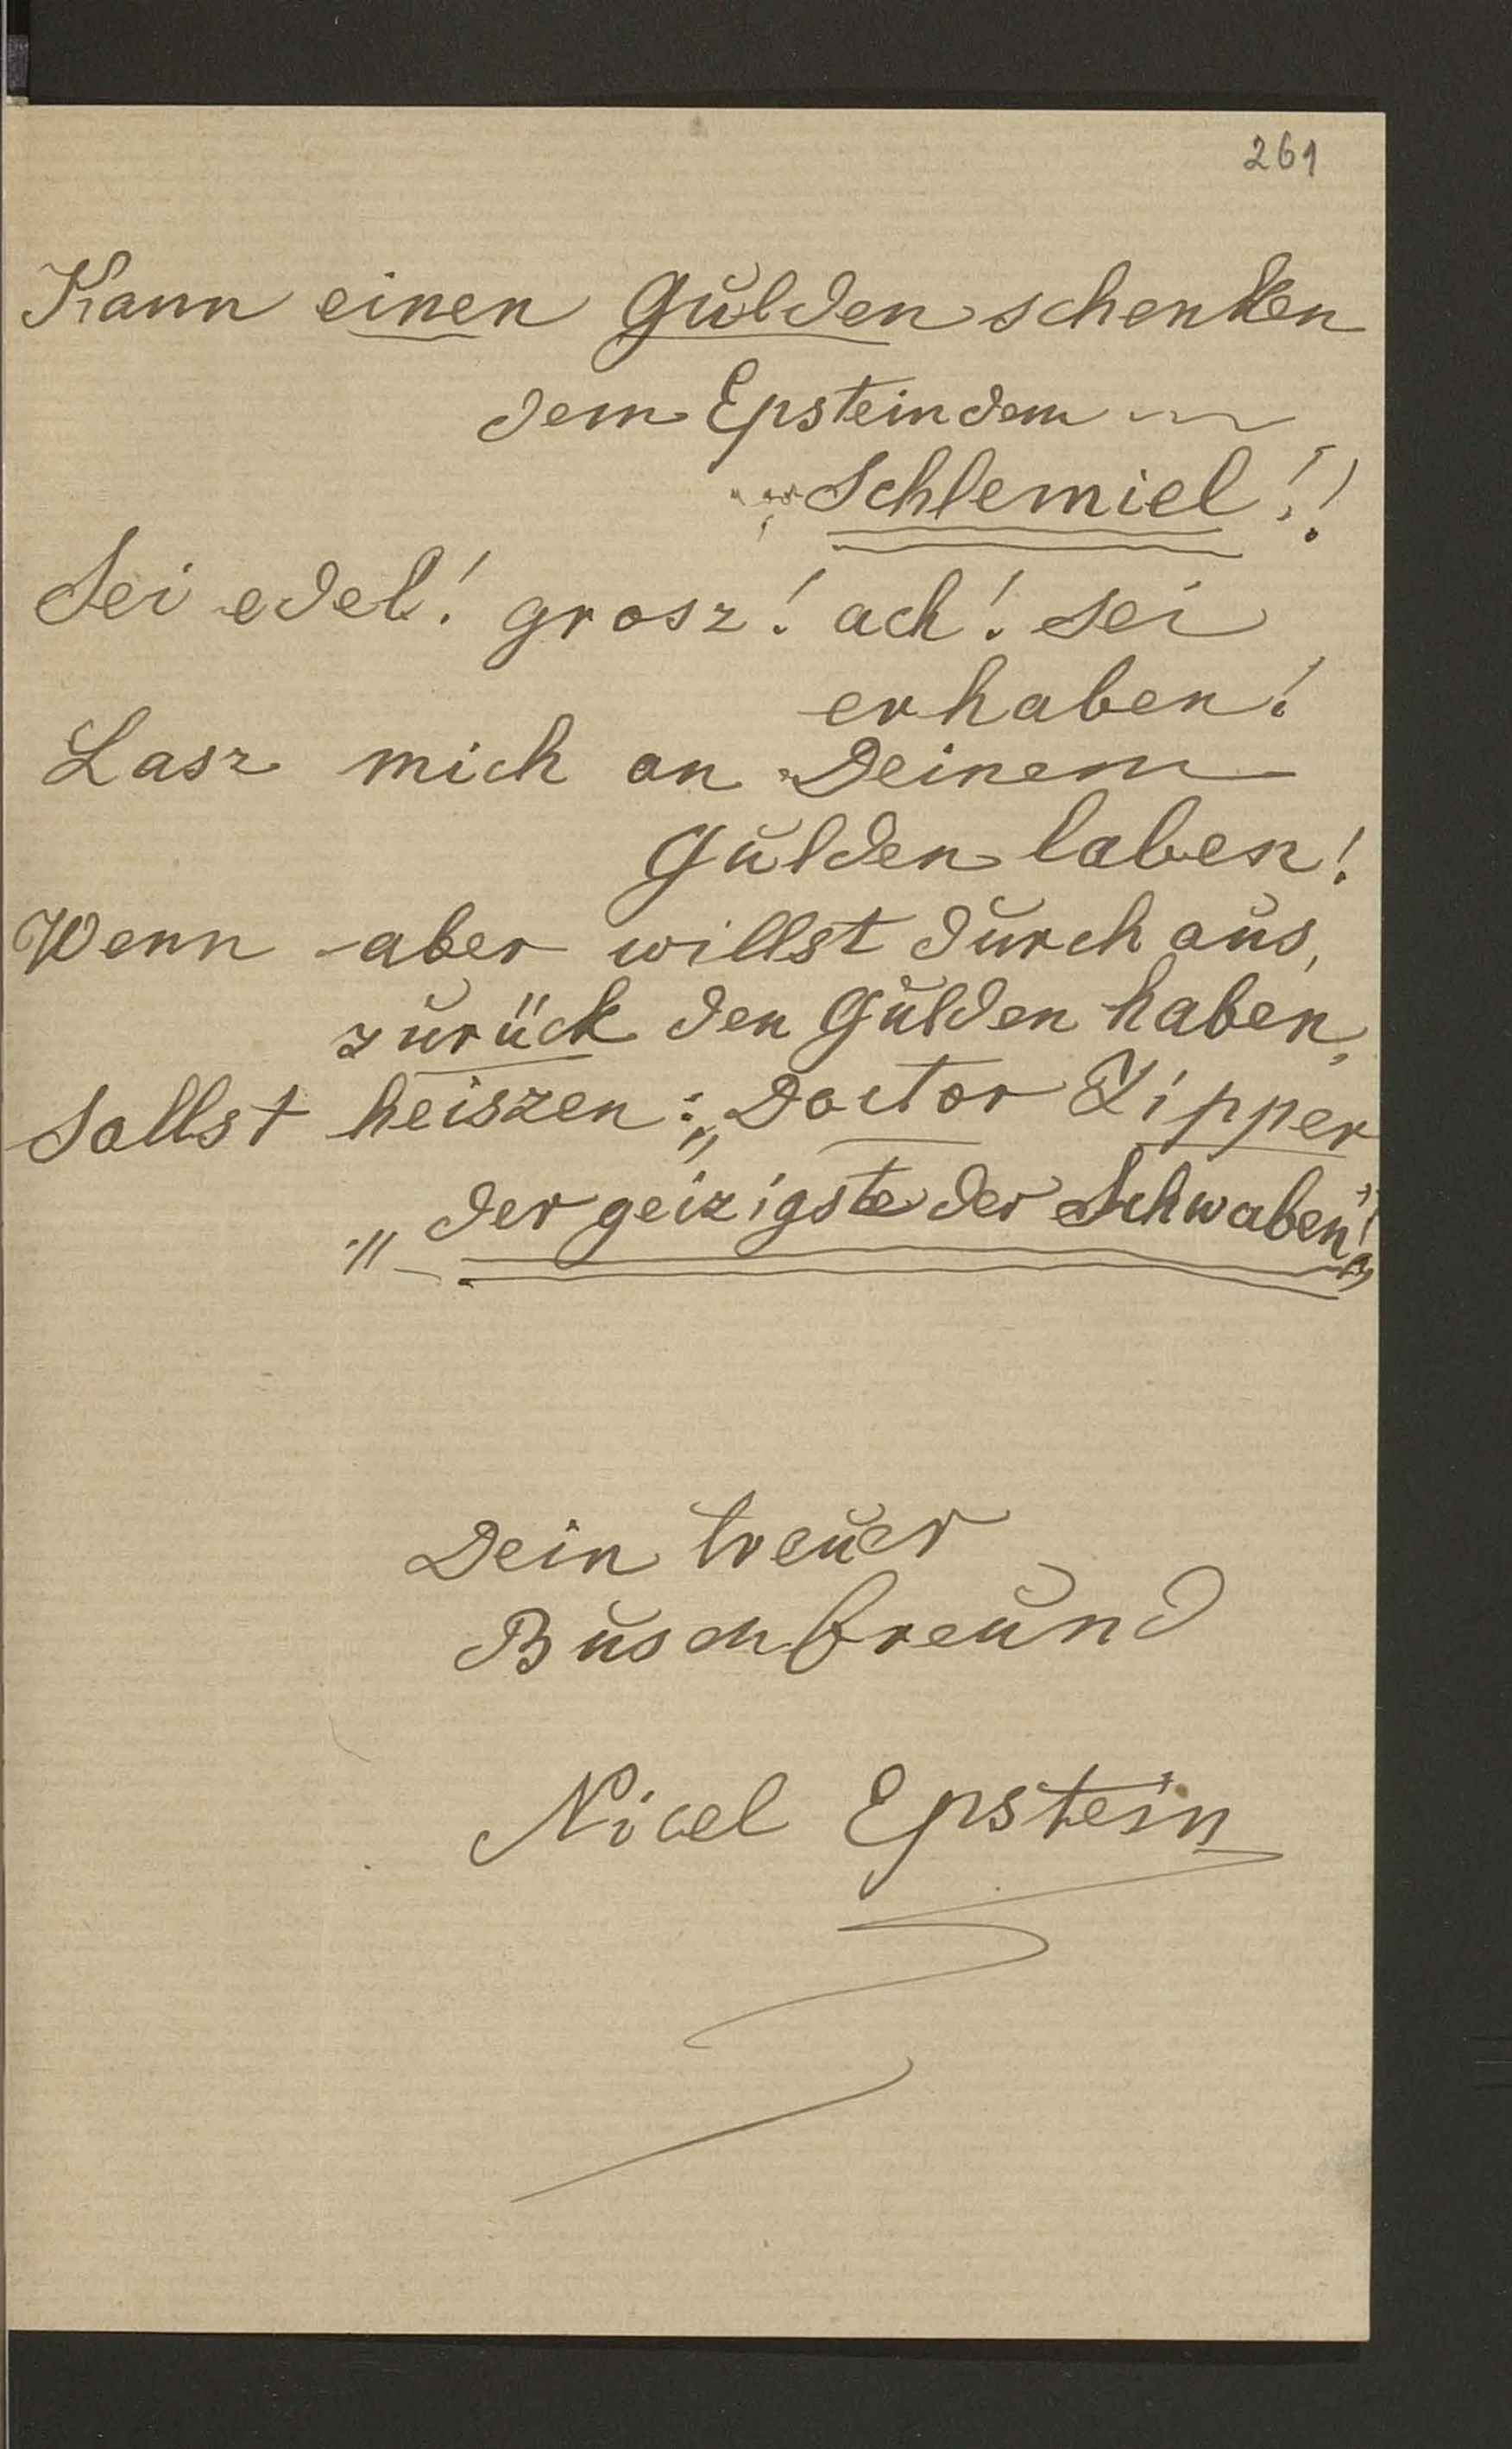 261
Kann einen Gulden schenken
dem Epstein dem
Schlemiel!!
Sei edel! grosz! ach! sei
erhaben!
Lasz mich an Deinem
Gulden laben!
Wenn aber willst durchaus,
zurück den Gulden haben,
Sollst heiszen: „Doctor Zipper
„der geizigste der Schwaben!"
Dein treuer
Buschfreund
Nicel Epstein